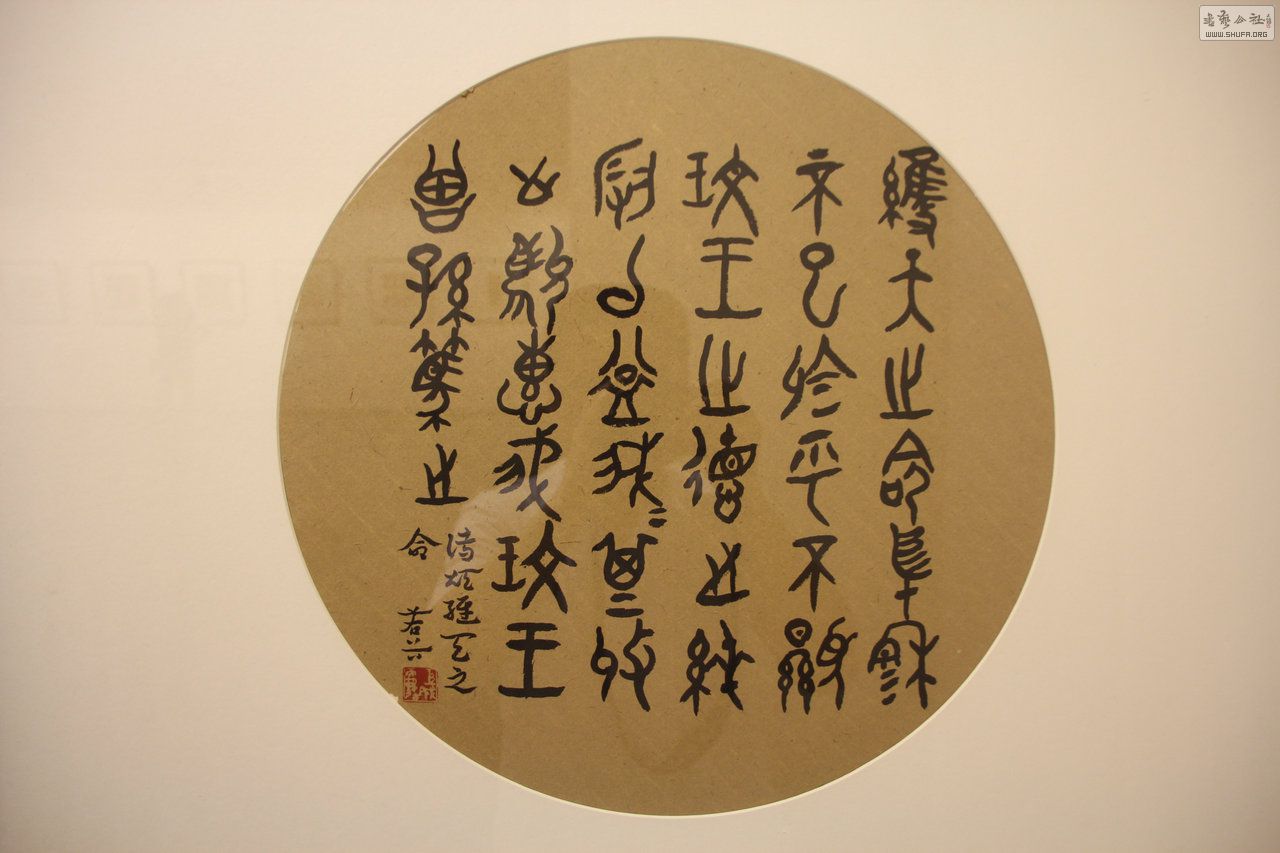 維天之命於穆
不已於乎不顯
玟王之德之純
假以溢我＝其收
之駿惠我玟王
曾孫篤之
詩頌維天之
命
書藝公社
WWW.SHUFA.ORG